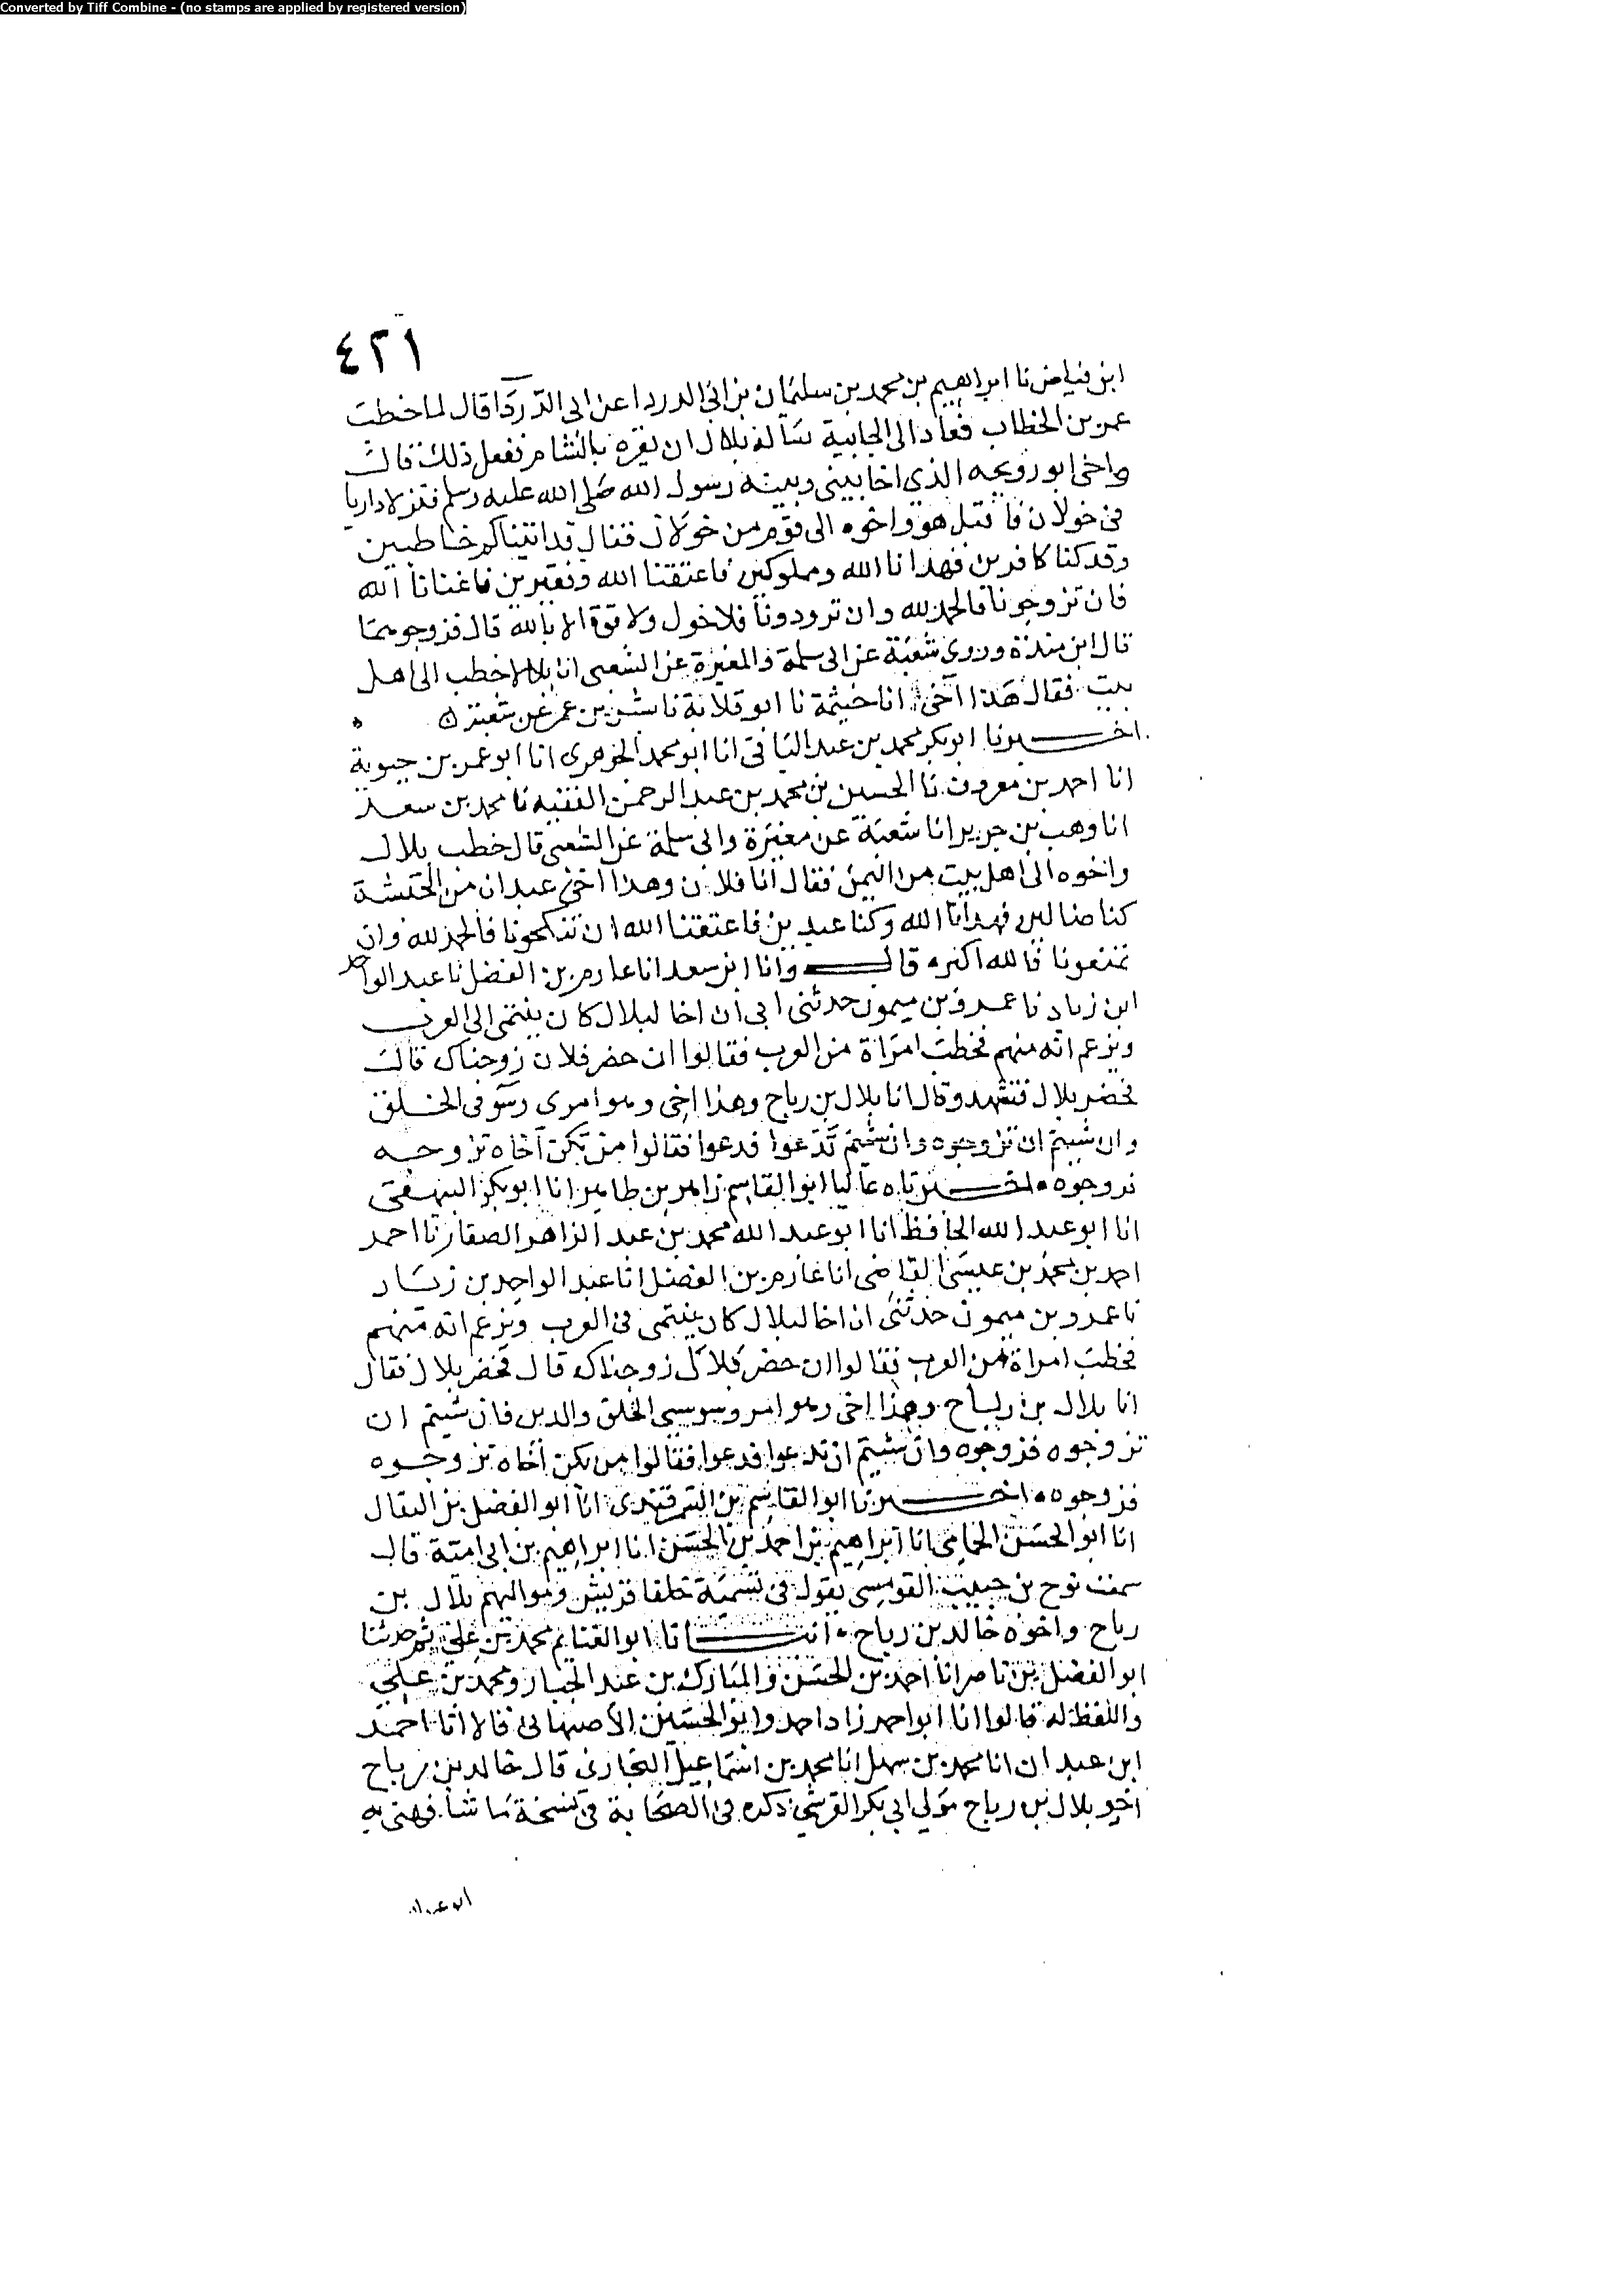 Converted by Tiff Combine - (no stamps are applied by registered version)
٤٢١
ابن فياض نا ابراهيم بن محمد بن سليمان بن ابي الدردا عن ابي الدردا قال لما خطب
عمر بن الخطاب فعاد الى الجابية سأله بلال ان يقره بالشام ففعل ذلك قال
واخى ابو رويحه الذى اخا بينى وبينه رسول الله صلى الله عليه وسلم فنزلا داريا
فى خولان فاقبل هو واخوه الى قوم من خولان فقال قد اتيناكم خاطبين
وقد كنا كافرين فهدانا الله ومملوكين فاعتقنا الله وفقيرين فاغنانا الله
فان تزوجونا فالحمد لله وان تردونا فلا حول ولا قوة الا بالله قال فزوجوهما
قال ابن مندة وروى شعبة عن ابى سلمة والمغيرة عن الشعبى ان بلالا خطب الى اهل
بيت فقال هذا اخى انا خيثمة نا ابو قلابة نا بشر بن عمر عن شعبة
اخبرنا ابو بكر محمد بن عبد الباقى انا ابو محمد الجوهرى انا ابو عمر بن حيوية
انا احمد بن معروف نا الحسين بن محمد بن عبد الرحمن الفقيه نا محمد بن سعد
انا وهب بن جرير انا شعبة عن مغيرة وابى سلمة عن الشعبى قال خطب بلال
واخوه الى اهل بيت من اليمن فقال انا فلان وهذا اخى عبدان من الحبشة
كنا ضالين فهدانا الله وكنا عبدين فاعتقنا الله ان تنكحونا فالحمد لله وان
تمنعونا فالله اكبر قال وانا ابن سعد انا عارم بن الفضل نا عبد الواحد
ابن زياد نا عمرو بن ميمون حدثنى ابى ان اخا لبلال كان ينتمى الى العرب
ويزعم انه منهم فخطب امراة من العرب فقالوا ان حضر فلان زوجناك قال
فحضر بلال فتشهد وقال انا بلال بن رباح وهذا اخى وهو امرى سو فى الخلق
وان شيتم ان تزوجوه وان شيتم تدعوا فدعوا فقالوا من تكن اخاه تزوجه
فزوجوه اخبرناه عاليا ابو القاسم زاهر بن طاهر انا ابو بكر البيهقى
انا ابو عبد الله الحافظ انا ابو عبد الله محمد بن عبد الزاهد الصفار نا احمد
احمد بن محمد بن عيسى القاضى انا عارم بن الفضل انا عبد الواحد بن زياد
نا عمرو بن ميمون حدثنى ان اخا لبلال كان ينتمى فى العرب ويزعم انه منهم
فخطب امراة من العرب فقالوا ان حضر بلال زوجناك قال فحضر بلال فقال
انا بلال بن رباح وهذا اخى وهو امرو سيى الخلق والدين فان شيتم ان
تزوجوه فزوجوه وان شيتم ان تدعوا فدعوا فقالوا من تكن اخاه تزوجوه
فزوجوه اخبرنا ابو القاسم بن السمرقندى انا ابو الفضل بن البقال
انا ابو الحسن الحمامى انا ابراهيم بن احمد بن الحسن انا ابراهيم بن ابى امية قال
سمعت نوح بن حبيب القومسى يقول فى تسمية حلفا قريش ومواليهم بلال بن
رباح واخوه خالد بن رباح انبانا ابو الغنايم محمد بن على ثم حدثنا
ابو الفضل بن ناصر انا احمد بن الحسن والمبارك بن عبد الجبار ومحمد بن على
واللفظ له قالوا انا ابو احمد زاد احمد وابو الحسين الاصبهانى قالا انا احمد
ابن عبدان انا محمد بن سهل انا محمد بن اسماعيل البخارى قال خالد بن رباح
اخو بلال بن رباح مولى ابى بكر القرشى ذكره فى الصحابة فى نسخة ما شا